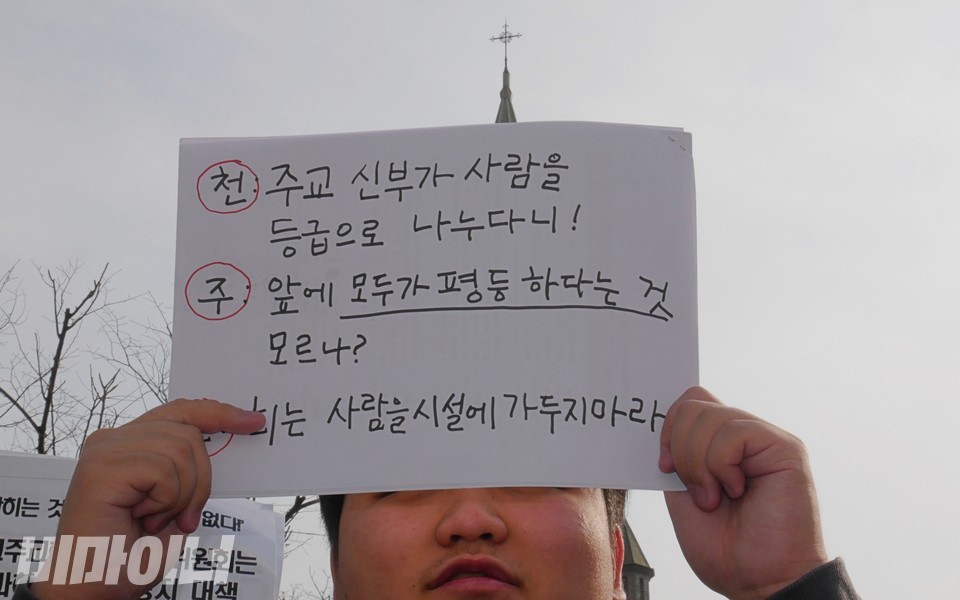 천: 주교 신부가 사람을
등급으로 나누다니!
주: 앞에 모두가 평등 하다는 것
모르나?
희는 사람을시설에가두지마라
히는 것
없다!
원회는
대책
비마이너